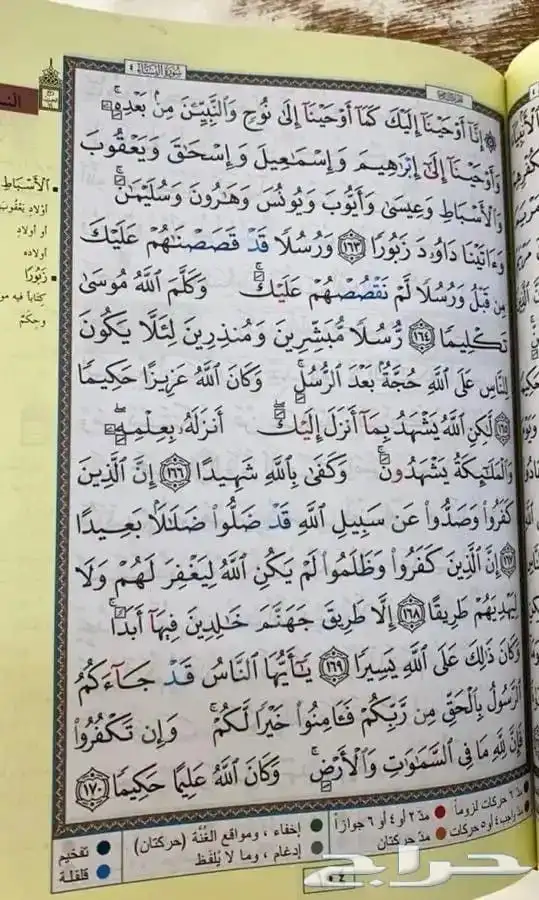 سُورَةُ النِّسَاءِ ٤
۞ إِنَّا أَوْحَيْنَا إِلَيْكَ كَمَا أَوْحَيْنَا إِلَىٰ نُوحٍ وَالنَّبِيِّـۧنَ مِنۢ بَعْدِهِۦ ۚ
وَأَوْحَيْنَا إِلَىٰ إِبْرَٰهِيمَ وَإِسْمَٰعِيلَ وَإِسْحَٰقَ وَيَعْقُوبَ
وَالْأَسْبَاطِ وَعِيسَىٰ وَأَيُّوبَ وَيُونُسَ وَهَٰرُونَ وَسُلَيْمَٰنَ ۚ
وَءَاتَيْنَا دَاوُۥدَ زَبُورًا ١٦٣ وَرُسُلًا قَدْ قَصَصْنَٰهُمْ عَلَيْكَ
مِن قَبْلُ وَرُسُلًا لَّمْ نَقْصُصْهُمْ عَلَيْكَ ۚ وَكَلَّمَ اللَّهُ مُوسَىٰ
تَكْلِيمًا ١٦٤ رُّسُلًا مُّبَشِّرِينَ وَمُنذِرِينَ لِئَلَّا يَكُونَ
لِلنَّاسِ عَلَى اللَّهِ حُجَّةٌۢ بَعْدَ الرُّسُلِ ۚ وَكَانَ اللَّهُ عَزِيزًا حَكِيمًا
١٦٥ لَّٰكِنِ اللَّهُ يَشْهَدُ بِمَا أَنزَلَ إِلَيْكَ ۖ أَنزَلَهُۥ بِعِلْمِهِۦ ۖ
وَالْمَلَٰٓئِكَةُ يَشْهَدُونَ ۚ وَكَفَىٰ بِاللَّهِ شَهِيدًا ١٦٦ إِنَّ الَّذِينَ
كَفَرُوا۟ وَصَدُّوا۟ عَن سَبِيلِ اللَّهِ قَدْ ضَلُّوا۟ ضَلَٰلًۢا بَعِيدًا
١٦٧ إِنَّ الَّذِينَ كَفَرُوا۟ وَظَلَمُوا۟ لَمْ يَكُنِ اللَّهُ لِيَغْفِرَ لَهُمْ وَلَا
لِيَهْدِيَهُمْ طَرِيقًا ١٦٨ إِلَّا طَرِيقَ جَهَنَّمَ خَٰلِدِينَ فِيهَا أَبَدًا ۚ
وَكَانَ ذَٰلِكَ عَلَى اللَّهِ يَسِيرًا ١٦٩ يَٰٓأَيُّهَا النَّاسُ قَدْ جَآءَكُمُ
الرَّسُولُ بِالْحَقِّ مِن رَّبِّكُمْ فَـَٔامِنُوا۟ خَيْرًا لَّكُمْ ۚ وَإِن تَكْفُرُوا۟
فَإِنَّ لِلَّهِ مَا فِي السَّمَٰوَٰتِ وَالْأَرْضِ ۚ وَكَانَ اللَّهُ عَلِيمًا حَكِيمًا ١٧٠
الْأَسْبَاطِ
أولاد يَعْقُوبَ
أو أولاد
أولاده
زَبُورًا
كتاباً فيه
وحِكَمٌ
مدّ ٦ حركات لزوماً
مدّ ٢ أو ٤ أو ٦ جوازاً
مدّ واجب ٤ أو ٥ حركات
مدّ حركتان
إخفاء ، ومواقع الغُنَّة (حركتان)
إدغام ، وما لا يُلفَظ
تفخيم
قلقلة
حراج